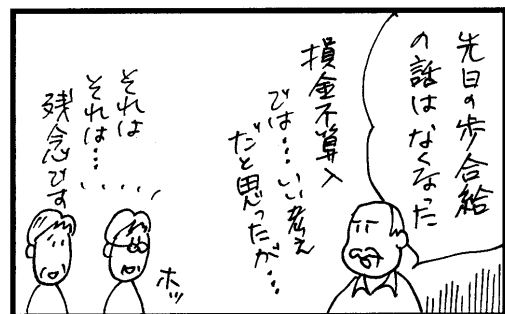 先日の歩合給
の話はなくなった
損金不算入
では…いい考え
だと思ったが…
それは
それは…
残念です
ホッ